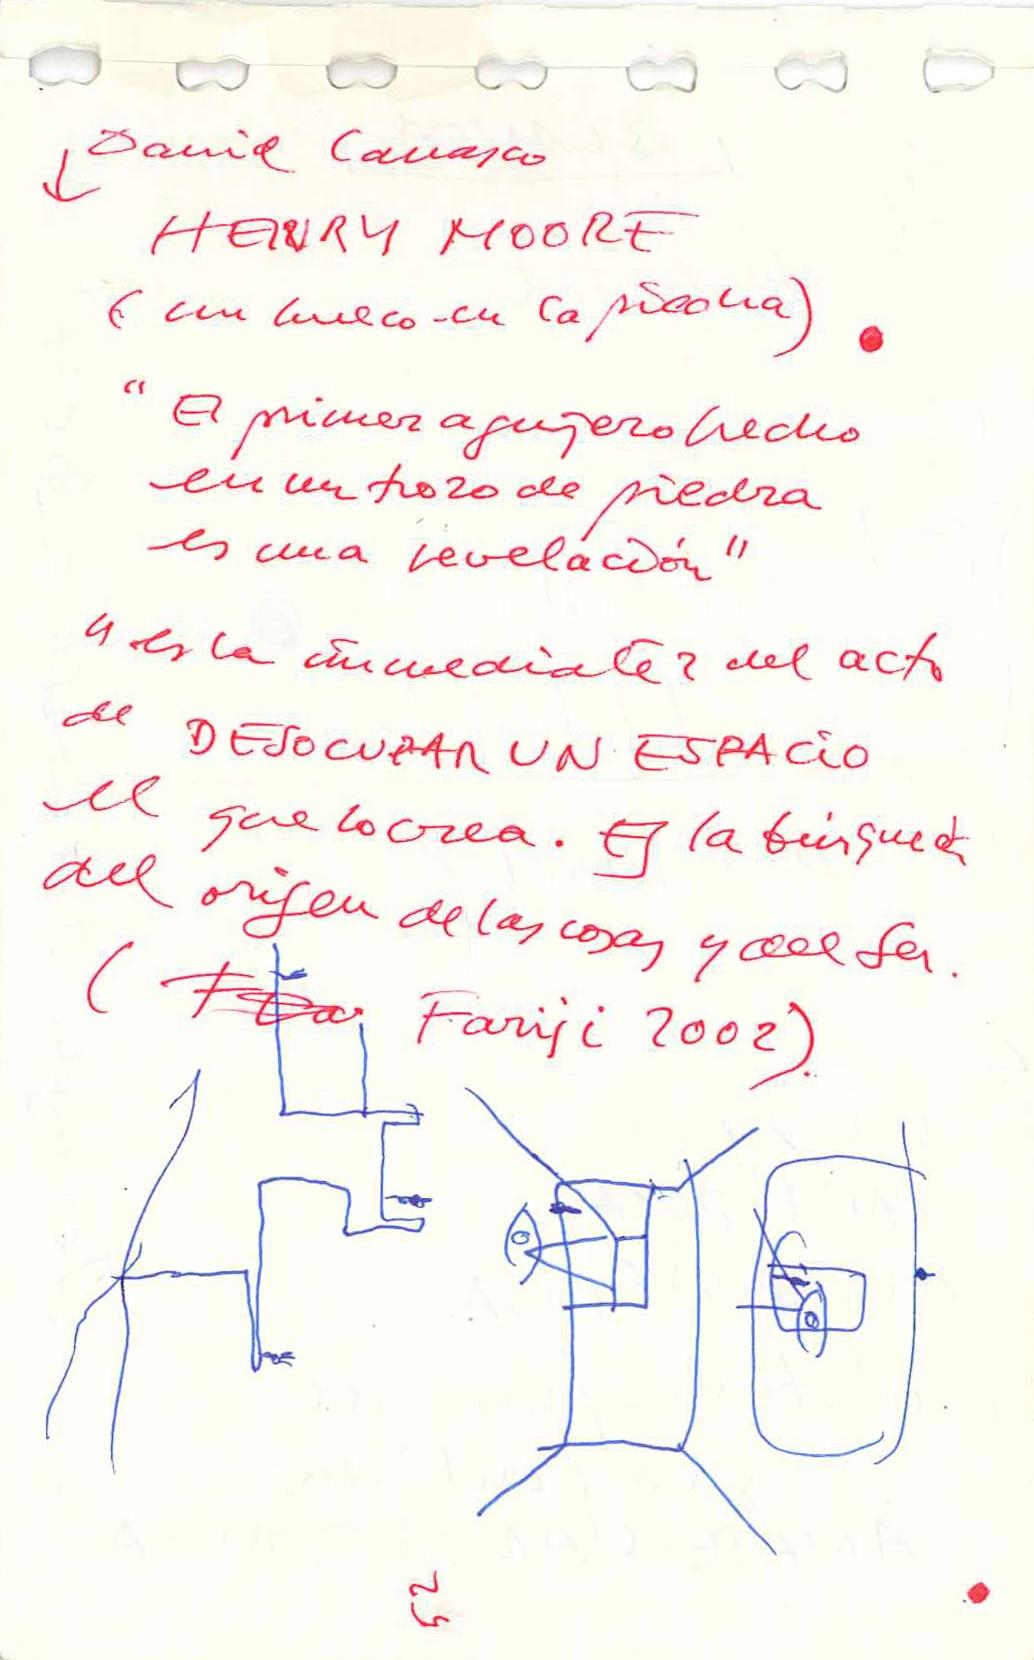 David Carrasco
HENRY MOORE
(un hueco en la piedra)
"El primer agujero hecho
en un trozo de piedra
es una revelación"
"es la inmediatez del acto
de DESOCUPAR UN ESPACIO
el que lo crea. Es la búsqueda
del origen de las cosas y del Ser.
( Fariji 2002).
25